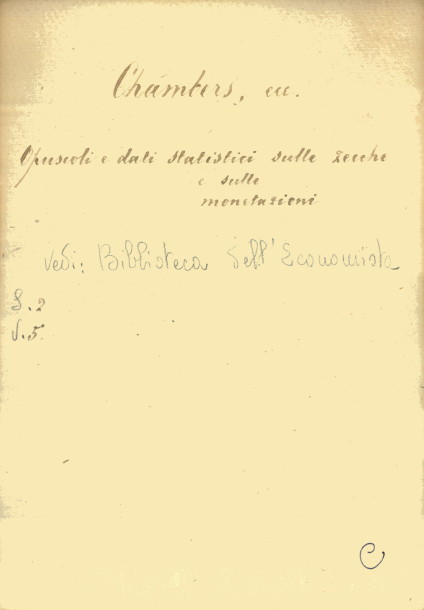 Chambers, ecc.
Opuscoli e dati statistici sulle zecche
e sulle
monetazioni
vedi: Biblioteca dell'Economista
S. 2
V. 5.
C